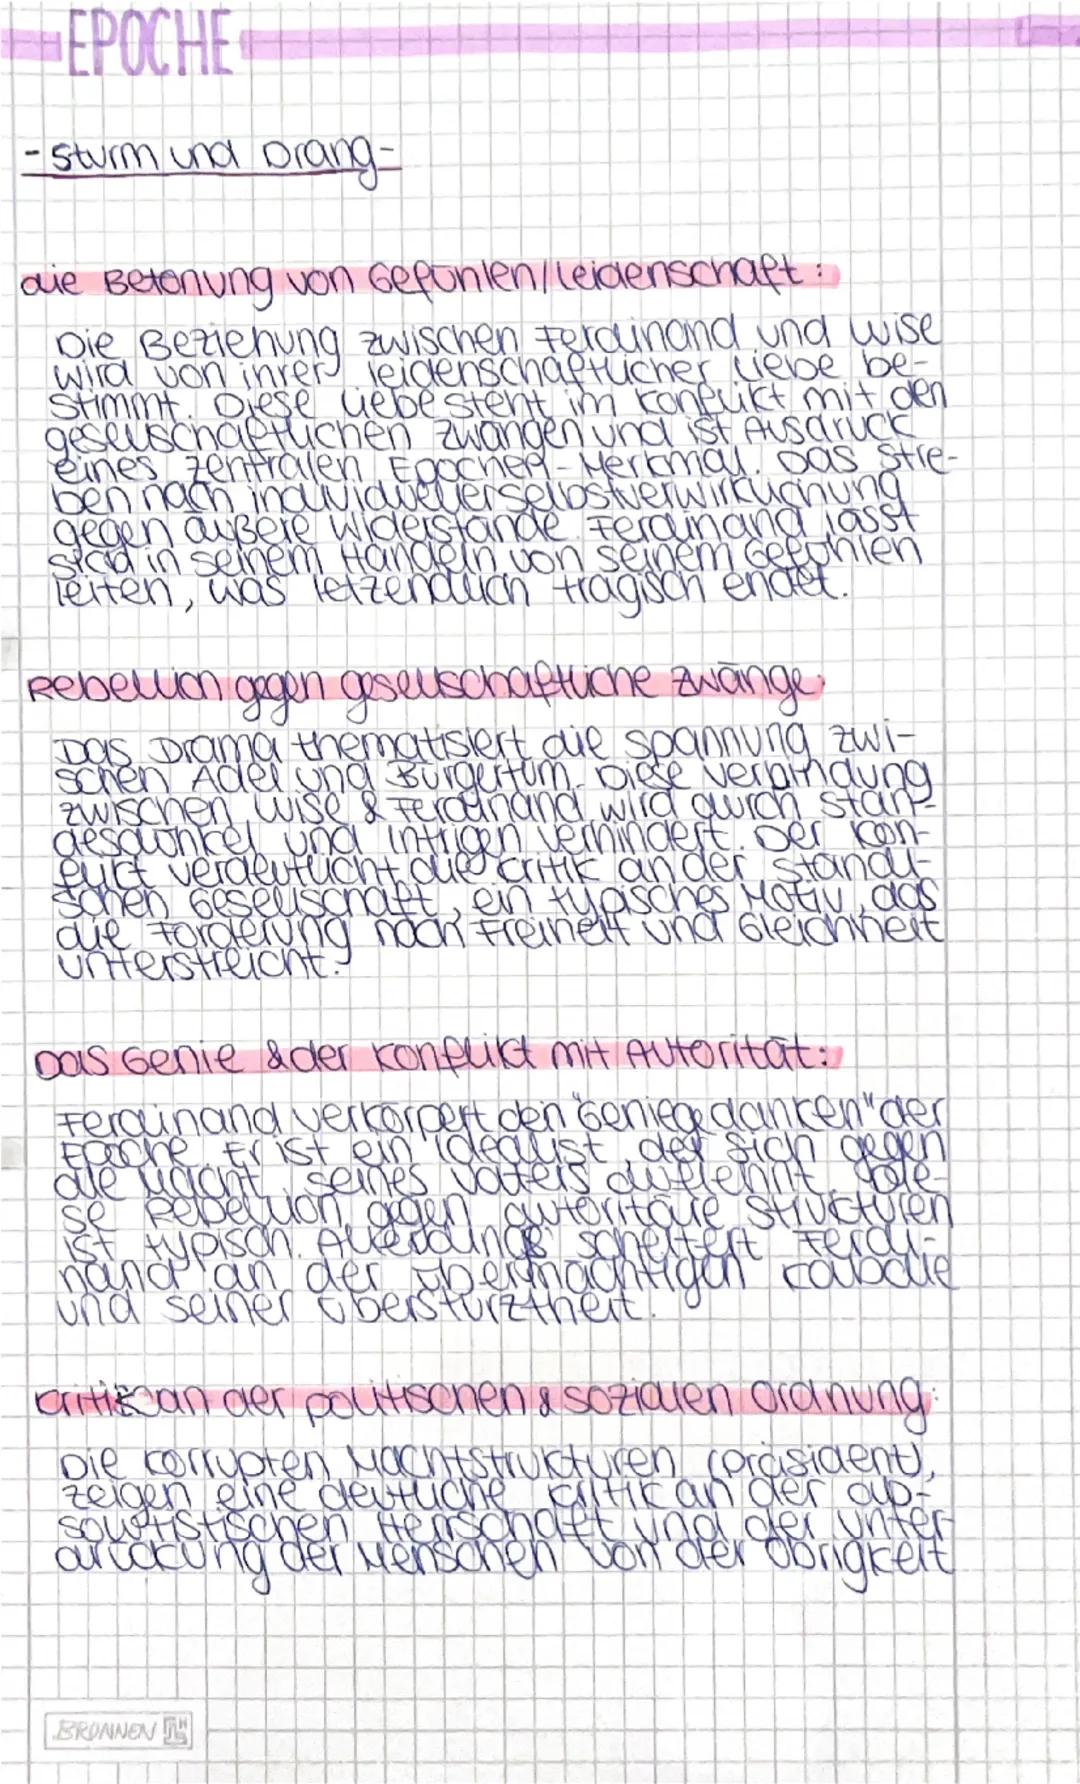 EPOCHE
- Sturm und Drang -
die Betonung von Gefühlen/Leidenschaft:
Die Beziehung zwischen Ferdinand und Luise
wird von ihrer leidenschaftlicher Liebe be-
stimmt. Diese Liebe steht im Konflikt mit den
gesellschaftlichen Zwängen und ist Ausdruck
eines zentralen Epochen-Merkmal. Das Stre-
ben nach individueller Selbstverwirklichung
gegen äußere Widerstände. Ferdinand lässt
sich in seinem Handeln von seinem Gefühlen
leiten, was letzendlich tragisch endet.
Rebellion gegen gesellschaftliche Zwänge:
Das Drama thematisiert die Spannung zwi-
schen Adel und Bürgertum. Diese Verbindung
zwischen Luise & Ferdinand wird durch Stan-
desdünkel und Intrigen verhindert. Der Kon-
flikt verdeutlicht die Critik an der ständi-
schen Gesellschaft, ein typisches Motiv, das
die Forderung nach Freiheit und Gleichheit
unterstreicht.
Das Genie & der Konflikt mit Autorität:
Ferdinand verkörpert den "Geniegedanken" der
Epoche. Er ist ein Idealist, der sich gegen
die Macht seines Vaters auflehnt. Die-
se Rebellion gegen autoritäre Strukturen
ist typisch. Allerdings scheitert Ferdi-
nand an der übermächtigen Kabale
und seiner Überstürztheit.
Critik an der politischen & sozialen Ordnung:
Die korrupten Machtstrukturen (Präsident),
zeigen eine deutliche Kritik an der ab-
solutistischen Herrschaft und der Unter-
drückung der Menschen von der Obrigkeit
BRUNNEN